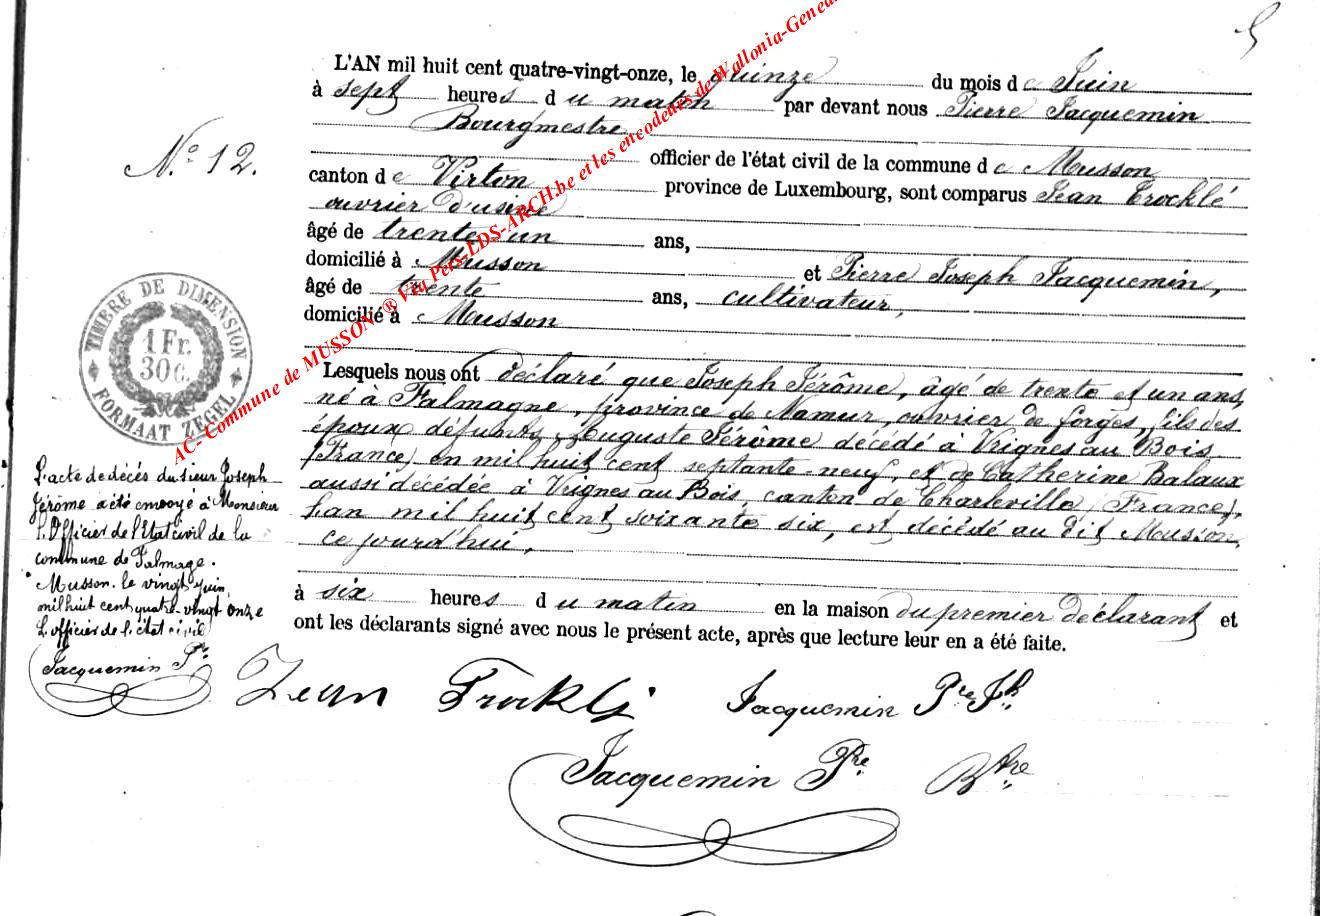 5
L'AN mil huit cent quatre-vingt-onze, le quinze du mois de Juin
à sept heures du matin par devant nous Pierre Jacquemin
Bourgmestre
N.° 12.
officier de l'état civil de la commune de Musson
canton de Virton province de Luxembourg, sont comparus Jean Trocklé
ouvrier d'usine
âgé de trente un ans,
domicilié à Musson et Pierre Joseph Jacquemin,
âgé de trente ans, cultivateur,
domicilié à Musson
TIMBRE DE DIMENSION
1 Fr.
30 c.
FORMAAT ZEGEL
Lesquels nous ont déclaré que Joseph Jérôme, âgé de trente et un ans,
né à Falmagne, province de Namur, ouvrier de forges, fils des
époux défunts, Auguste Jérôme décédé à Vrignes au Bois
(France) en mil huit cent septante-neuf, et de Catherine Balaux
aussi décédée à Vrignes au Bois, canton de Charleville (France),
l'an mil huit cent soixante six, est décédé au dit Musson,
ce jourd'hui,
à six heures du matin en la maison du premier déclarant et
ont les déclarants signé avec nous le présent acte, après que lecture leur en a été faite.
L'acte de décès du sieur Joseph
Jérôme a été envoyé à Monsieur
l'Officier de l'Etat civil de la
commune de Falmage.
Musson. le vingt juin,
mil huit cent quatre-vingt onze
L'officier de l'état civil
Jacquemin Pre
Jean Trockly Jacquemin Pre Jh
Jacquemin Pre Bre
AC- Commune de MUSSON ® Via Pers-LDS-ARCH.be et les encodeurs de Wallonia-Genea